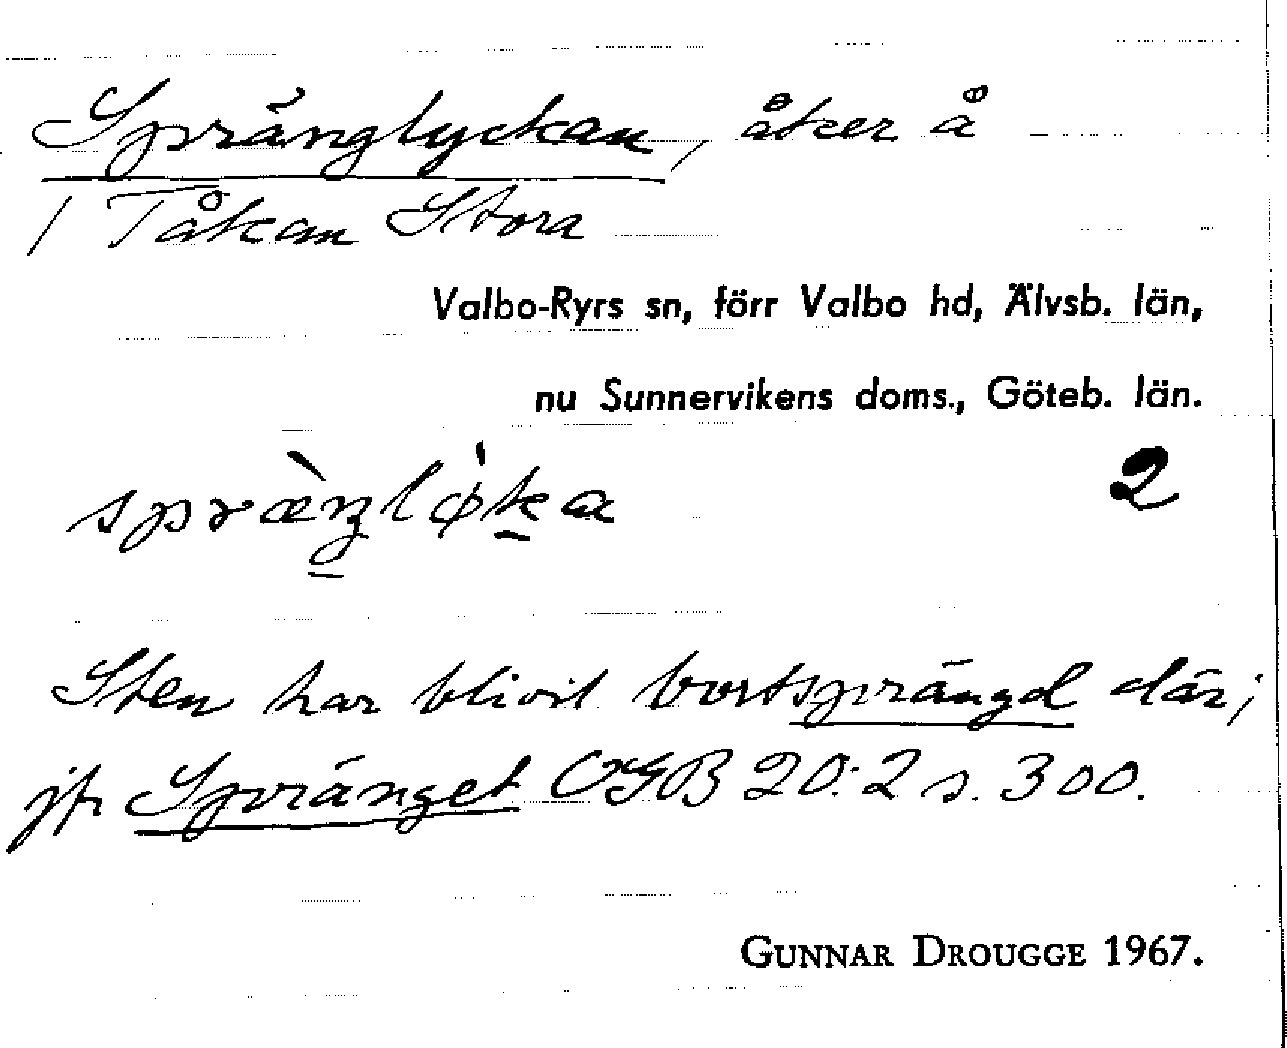 Spränglyckan, åker å
1 Tåkan Stora
Valbo-Ryrs sn, förr Valbo hd, Älvsb. län,
nu Sunnervikens doms., Göteb. län.
2
Sten har blivit bortsprängd där;
jfr Spränget OGB 20:2 s. 300.
GUNNAR DROUGGE 1967.